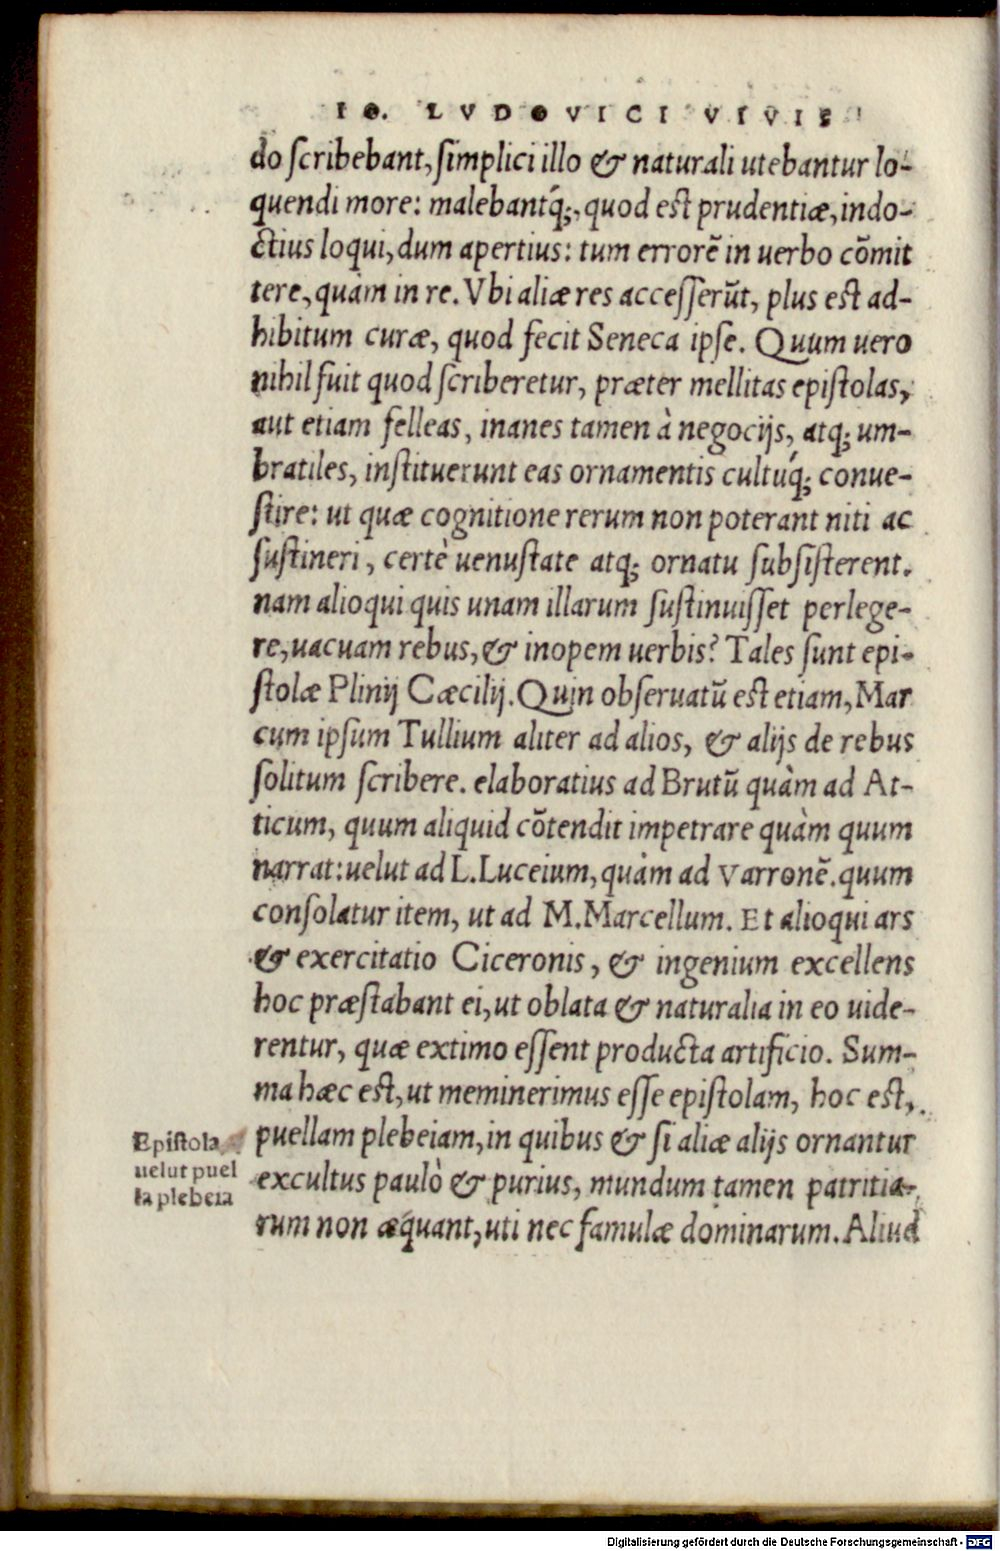 IO. LVDOVICI VIVIS
do scribebant, simplici illo & naturali utebantur lo-
quendi more: malebantq́;, quod est prudentiæ, indo-
ctius loqui, dum apertius: tum errorẽ in uerbo cõmit
tere, quàm in re. Vbi aliæ res accesserũt, plus est ad-
hibitum curæ, quod fecit Seneca ipse. Quum uero
nihil fuit quod scriberetur, præter mellitas epistolas,
aut etiam felleas, inanes tamen à negocijs, atq; um-
bratiles, instituerunt eas ornamentis cultuq́; conue-
stire: ut quæ cognitione rerum non poterant niti ac
sustineri, certè uenustate atq; ornatu subsisterent.
nam alioqui quis unam illarum sustinuisset perlege-
re, uacuam rebus, & inopem uerbis? Tales sunt epi-
stolæ Plinij Cæcilij. Quin obseruatũ est etiam, Mar
cum ipsum Tullium aliter ad alios, & alijs de rebus
solitum scribere. elaboratius ad Brutũ quàm ad At-
ticum, quum aliquid cõtendit impetrare quàm quum
narrat: uelut ad L. Luceium, quàm ad Varronẽ. quum
consolatur item, ut ad M. Marcellum. Et alioqui ars
& exercitatio Ciceronis, & ingenium excellens
hoc præstabant ei, ut oblata & naturalia in eo uide-
rentur, quæ extimo essent producta artificio. Sum-
ma hæc est, ut meminerimus esse epistolam, hoc est,
puellam plebeiam, in quibus & si aliæ alijs ornantur
excultus paulò & purius, mundum tamen patritia-
rum non æquant, uti nec famulæ dominarum. Aliud
Epistola
uelut puel
la plebeia
Digitalisierung gefördert durch die Deutsche Forschungsgemeinschaft - DFG